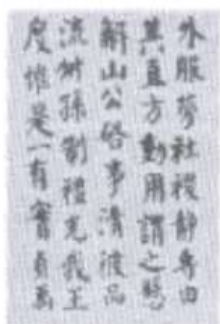 外服蓼社稷静專由
其直方動用謂之懸
解山公啓事清彼品
流
孫制禮光我王
度惟是一有實貞萬